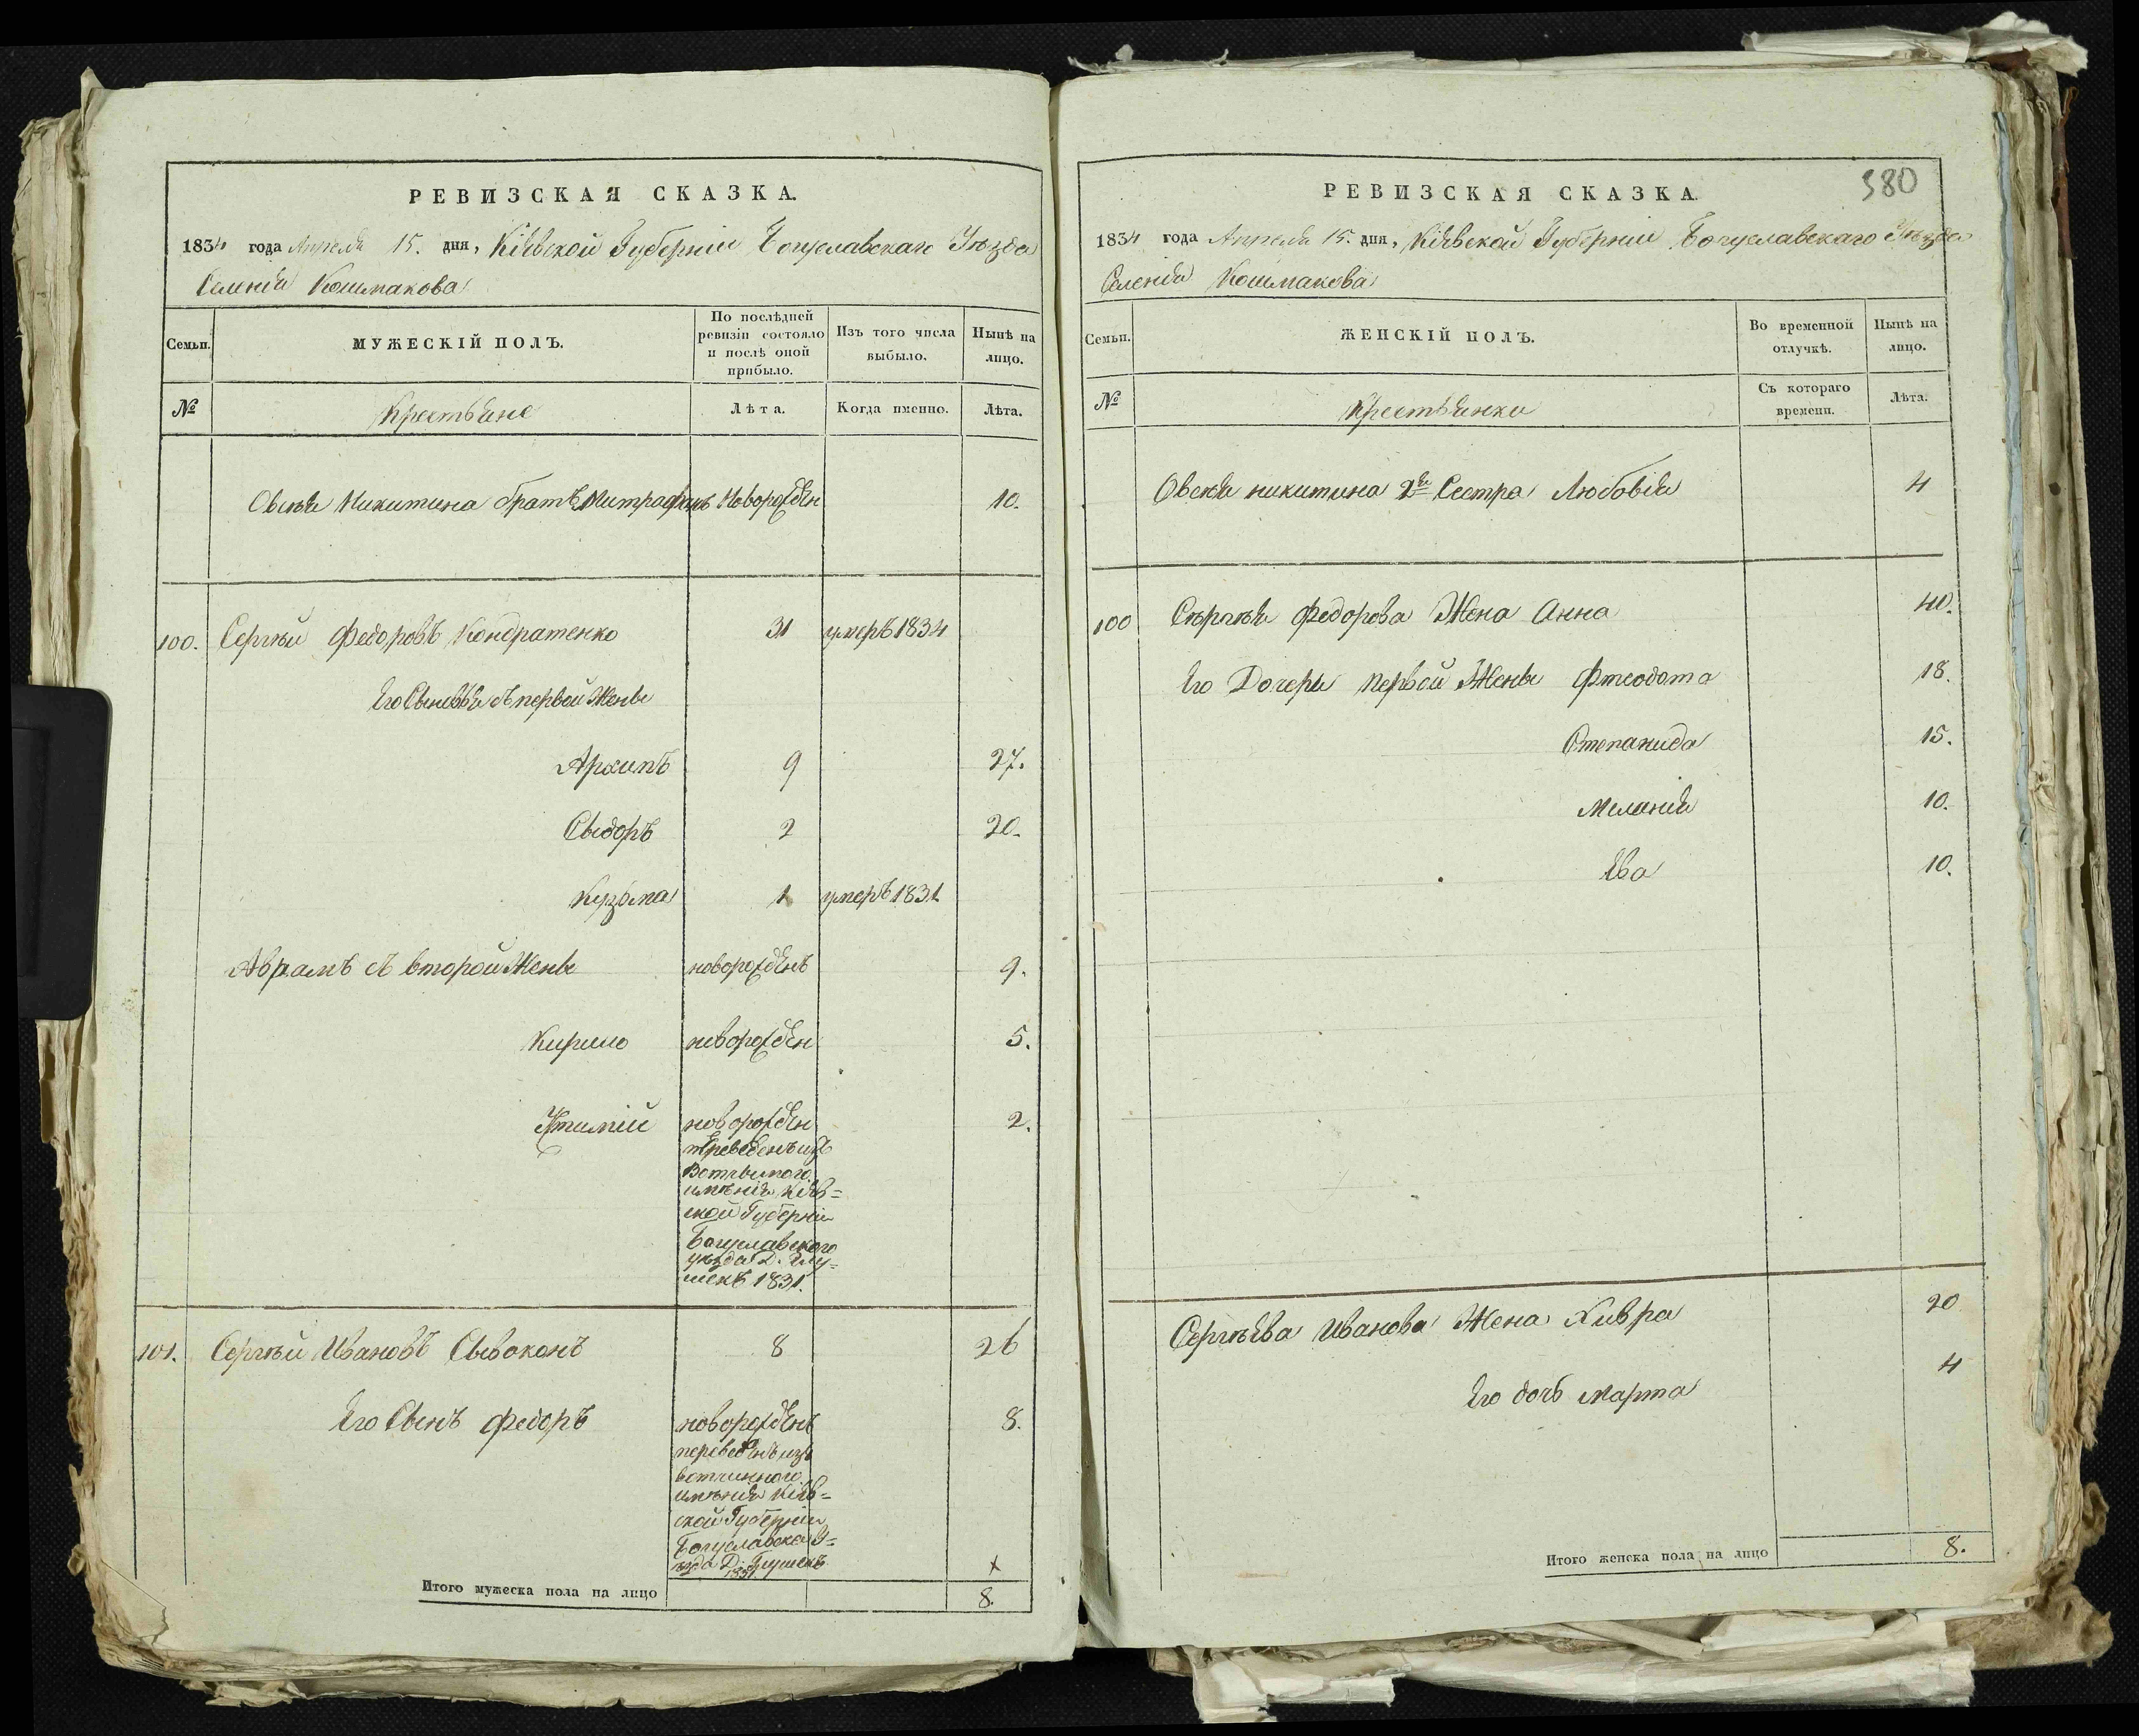 РЕВИЗСКАЯ СКАЗКА.
1834 года Апреля 15. дня, Кіевской Губерніи Богуславскаго Уѣзда
Селенія Кошмакова
Семьи. МУЖЕСКІЙ ПОЛЪ. По послѣдней ревизіи состояло и послѣ оной прибыло. Изъ того числа выбыло. Нынѣ на лицо.
№ Крестьяне Лѣта. Когда именно. Лѣта.
Никитина братъ Митрофанъ Новорожден 10.
100. Сергѣй Федоровъ Кондратенко 31 умеръ 1834
Его Сыновья съ первой Жены
Архипъ 9 27.
Сыдоръ 2 20.
Кузьма 1 умеръ 1831
Аврамъ съ второй Жены новорожденъ 9.
Кирило новорожден 5.
новорожден 2.
переведенъ изъ
имѣнія Кіев=
ской Губерніи
Богуславского
уѣзда Д. Глу=
шекъ 1831.
101. Сергѣй Ивановъ Сывоконъ 8 26
Его Сынъ Федоръ новорожденъ 8.
переведенъ изъ
вотчинного
имѣнія Кіев=
ской Губерніи
Богуславска У=
ѣзда Д. Глушекъ
1831
х
Итого мужеска пола на лицо 8.
380
РЕВИЗСКАЯ СКАЗКА.
1834 года Апреля 15. дня, Кіевской Губерніи Богуславскаго Уѣзда
Селенія Кошмакова
Семьи. ЖЕНСКІЙ ПОЛЪ. Во временной отлучкѣ. Нынѣ на лицо.
№ Крестьянки Съ котораго времени. Лѣта.
никитина 2я Сестра Любовія 4
100 Сергѣя Федорова Жена Анна 40.
Его Дочери первой Жены Фтеодота 18.
Степанида 15.
Меланія 10.
Ева 10.
Сергѣева Иванова Жена Хивра 20
Его дочь Марта 4
Итого женска пола на лицо 8.